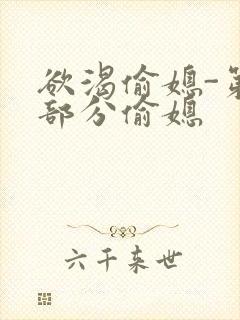 欲渴偷媳-第
部分偷媳
六千来世